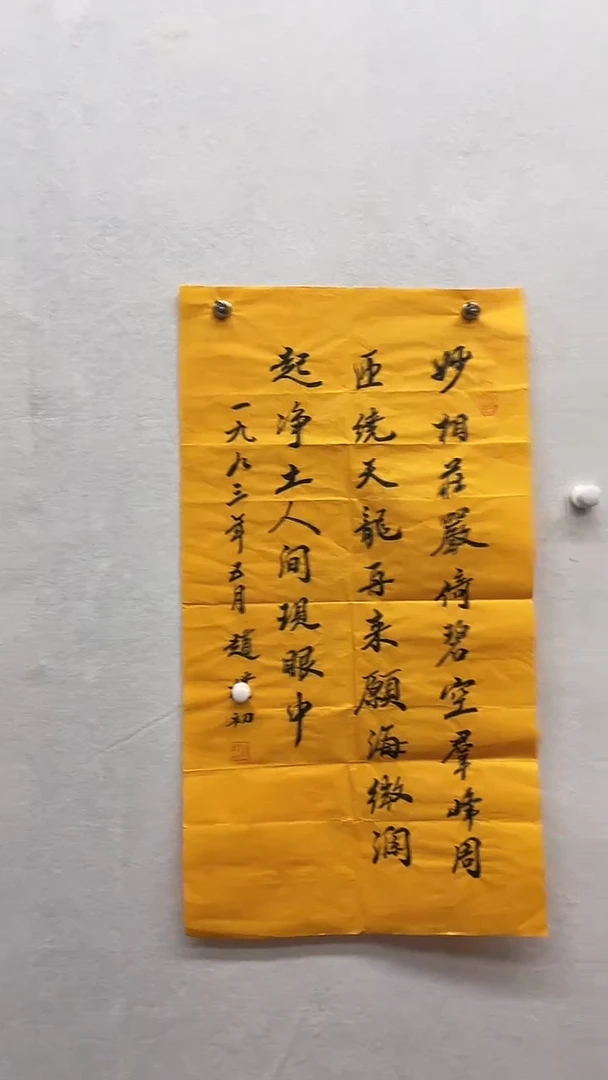 妙相莊嚴倚碧空羣峰周
匝繞天龍再来願海微瀾
起净土人间現眼中
一九八三年五月趙 初